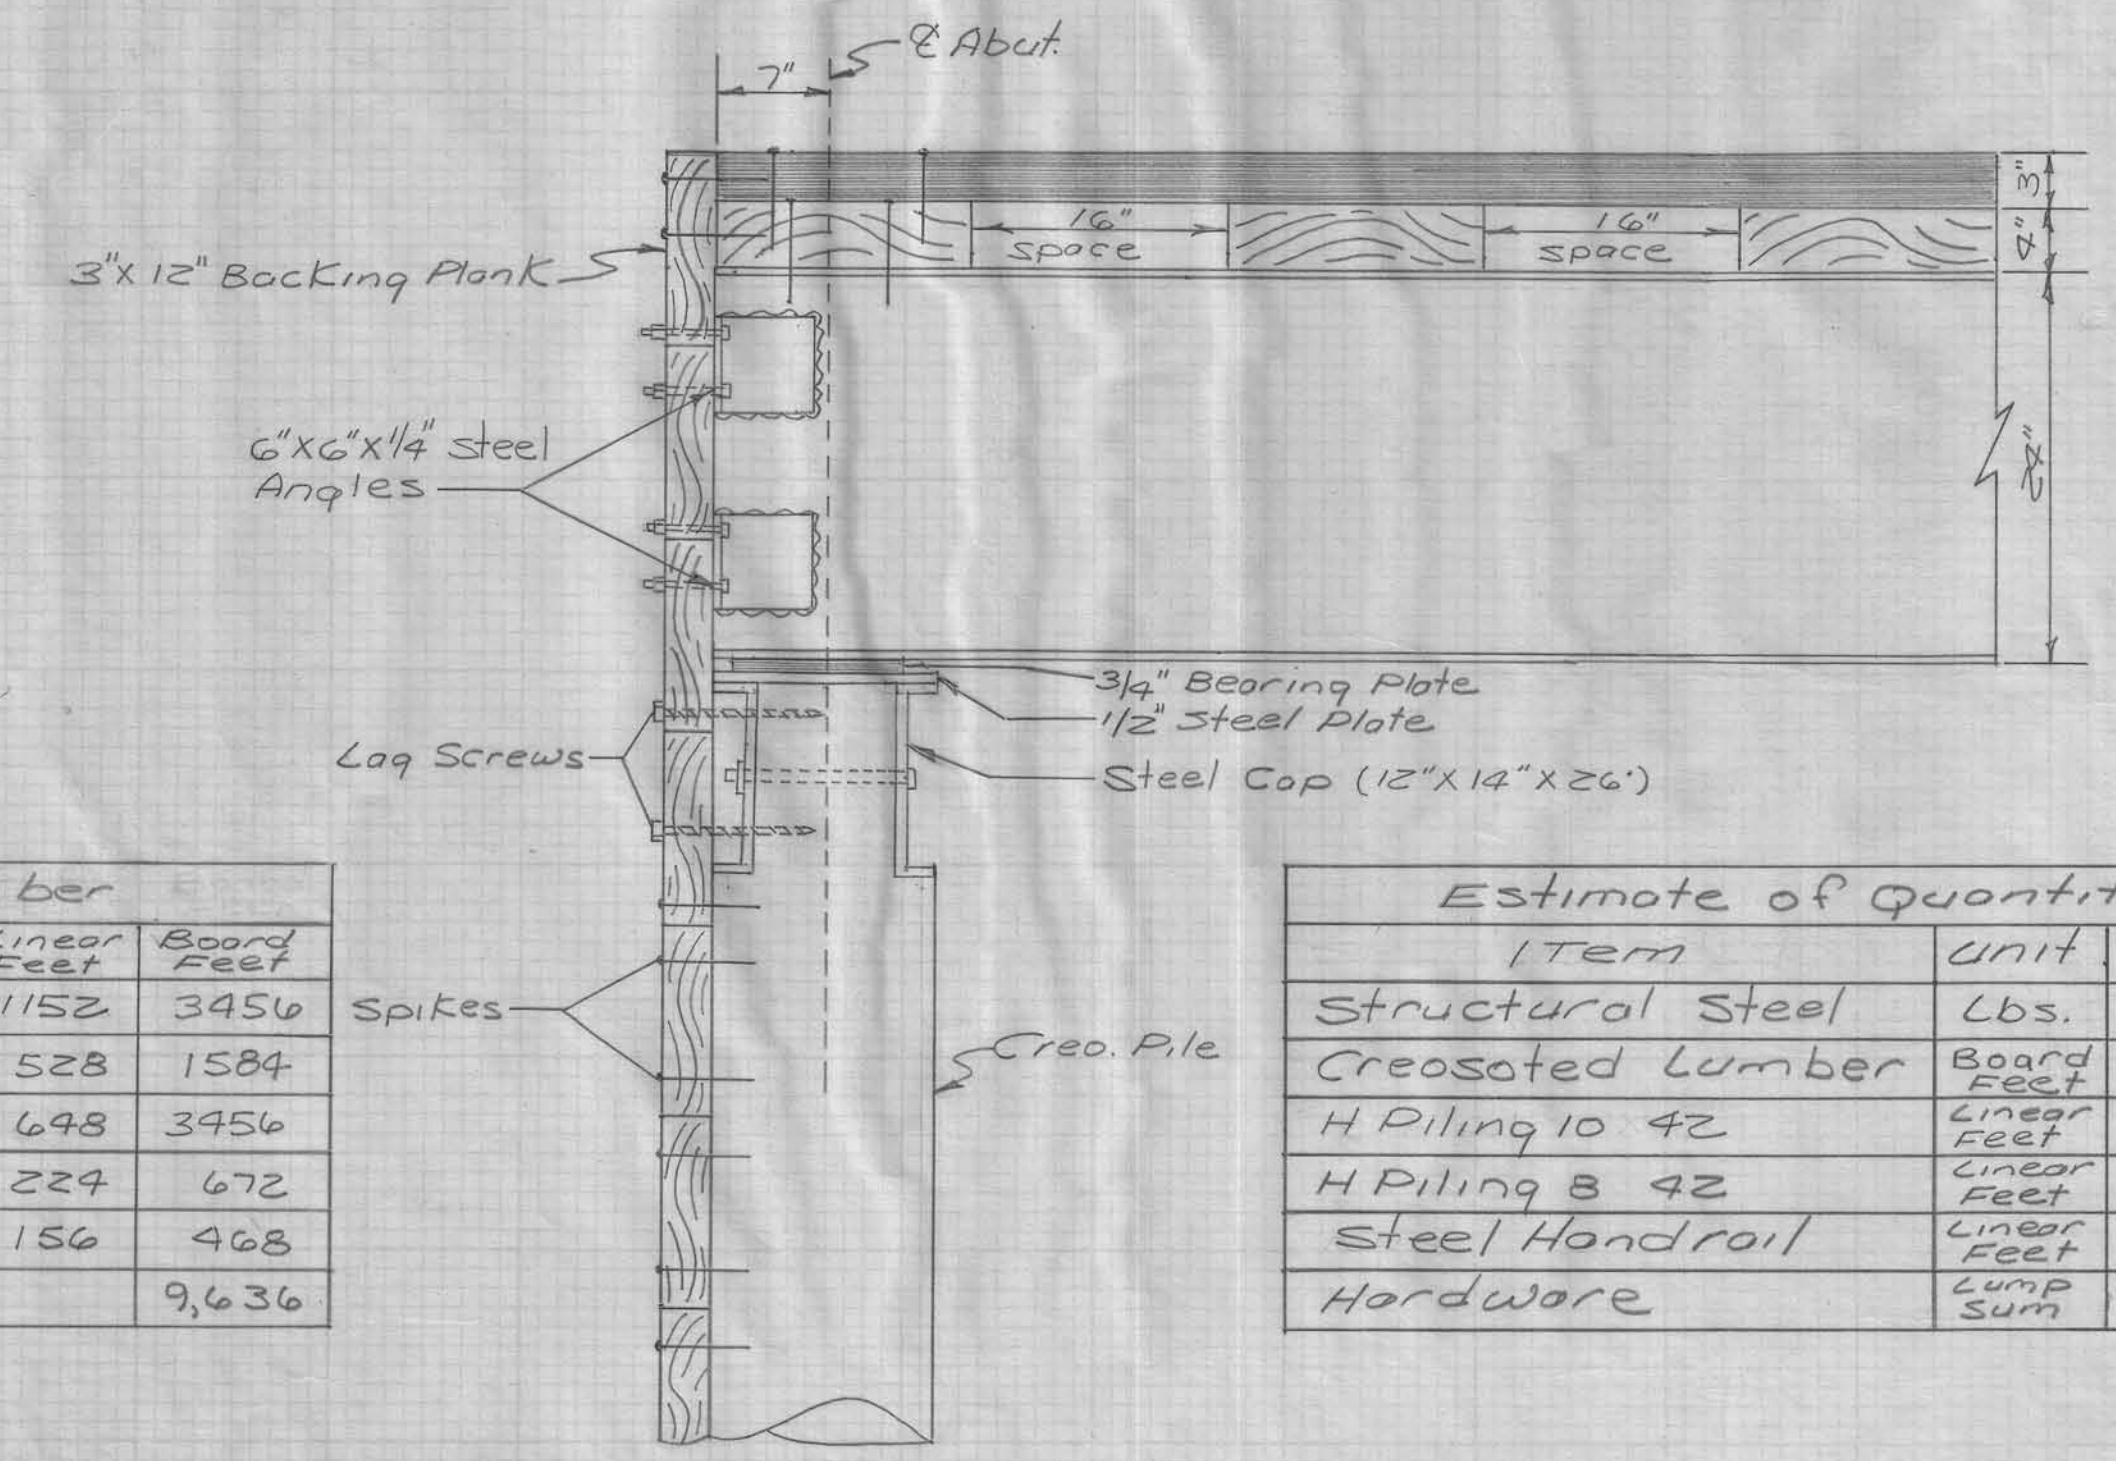 ℄ Abut.
7"
3"
16"
space
16"
space
4"
3"X 12" Backing Plank
6"X6"X1/4" Steel
Angles
24"
3/4" Bearing Plate
1/2" Steel Plate
Lag Screws
Steel Cap (12"X 14"X 26')
ber
Linear Feet Board Feet
1152 3456
528 1584
648 3456
224 672
156 468
9,636
Spikes
Creo. Pile
Estimate of Quantit
Item Unit
Structural Steel Lbs.
Creosoted Lumber Board Feet
H Piling 10 42 Linear Feet
H Piling 8 42 Linear Feet
Steel Handrail Linear Feet
Hardware Lump Sum